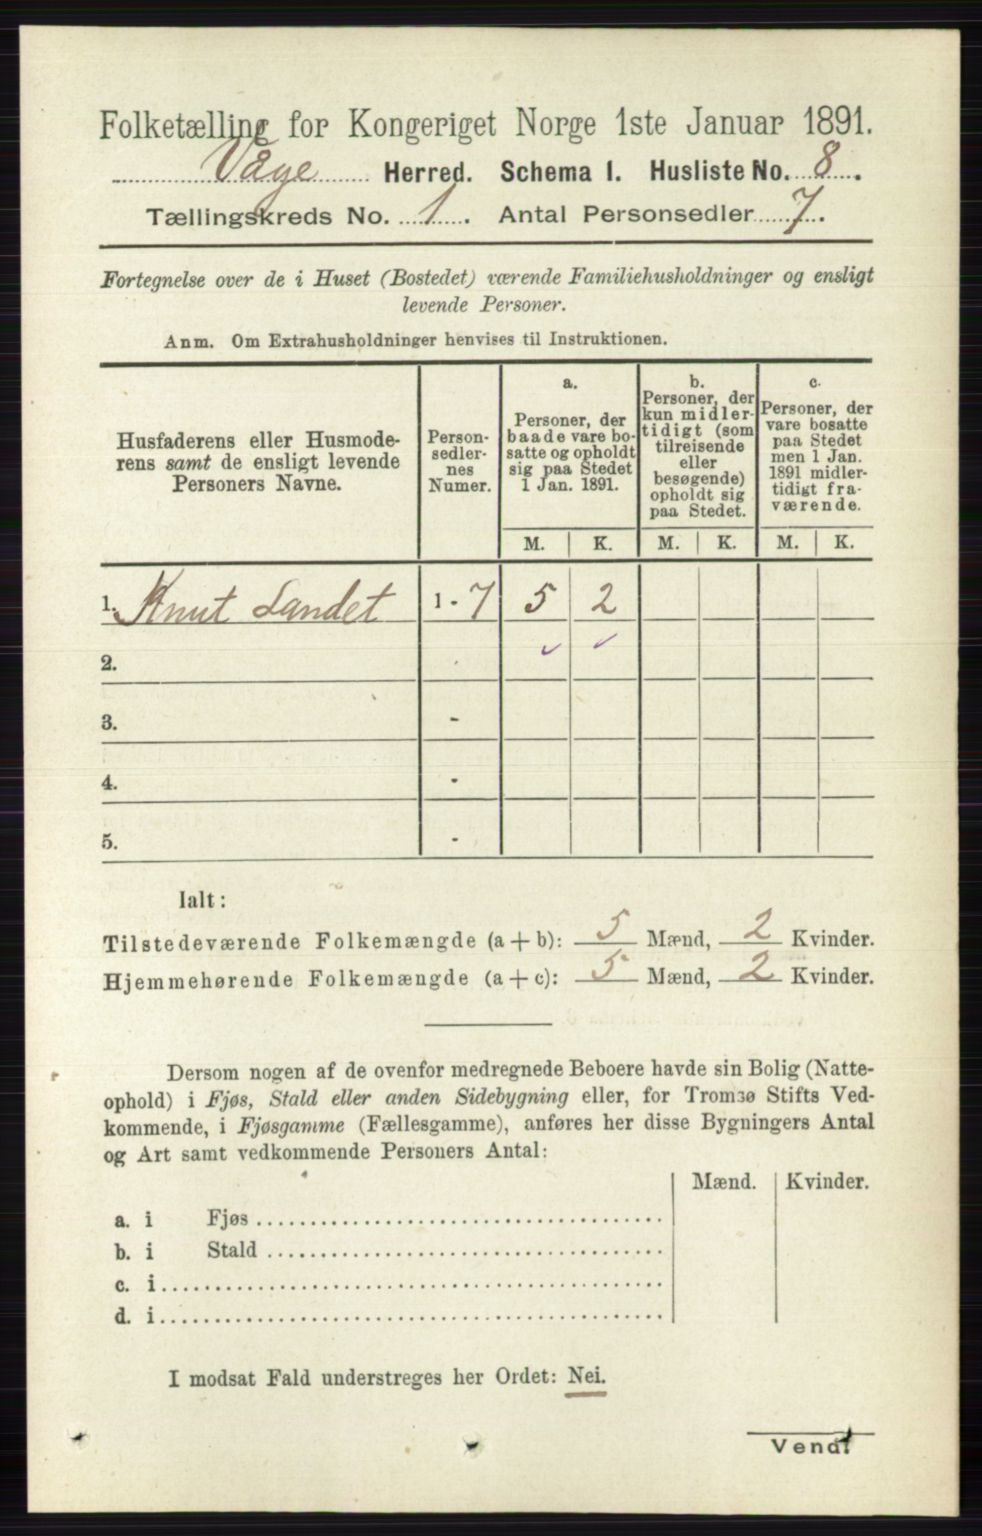 Folketælling for Kongeriget Norge 1ste Januar 1891.
Våge Herred. Schema I. Husliste No. 8.
Tællingskreds No. 1. Antal Personsedler 7.
Fortegnelse over de i Huset (Bostedet) værende Familiehusholdninger og ensligt
levende Personer.
Anm. Om Extrahusholdninger henvises til Instruktionen.
Husfaderens eller Husmode-
rens samt de ensligt levende
Personers Navne.
Person-
sedler-
nes
Numer.
a.
Personer, der
baade vare bo-
satte og opholdt
sig paa Stedet
1 Jan. 1891.
b.
Personer, der
kun midler-
tidigt (som
tilreisende
eller
besøgende)
opholdt sig
paa Stedet.
c.
Personer, der
vare bosatte
paa Stedet
men 1 Jan.
1891 midler-
tidigt fra-
værende.
M. K. M. K. M. K.
1. Knut Sandet 1 - 7 5 2
2.
3. -
4. -
5. -
Ialt:
Tilstedeværende Folkemængde (a + b): 5 Mænd, 2 Kvinder.
Hjemmehørende Folkemængde (a + c): 5 Mænd, 2 Kvinder.
Dersom nogen af de ovenfor medregnede Beboere havde sin Bolig (Natte-
ophold) i Fjøs, Stald eller anden Sidebygning eller, for Tromsø Stifts Ved-
kommende, i Fjøsgamme (Fællesgamme), anføres her disse Bygningers Antal
og Art samt vedkommende Personers Antal:
Mænd. Kvinder.
a. i Fjøs
b. i Stald
c. i
d. i
I modsat Fald understreges her Ordet: Nei.
Vend!